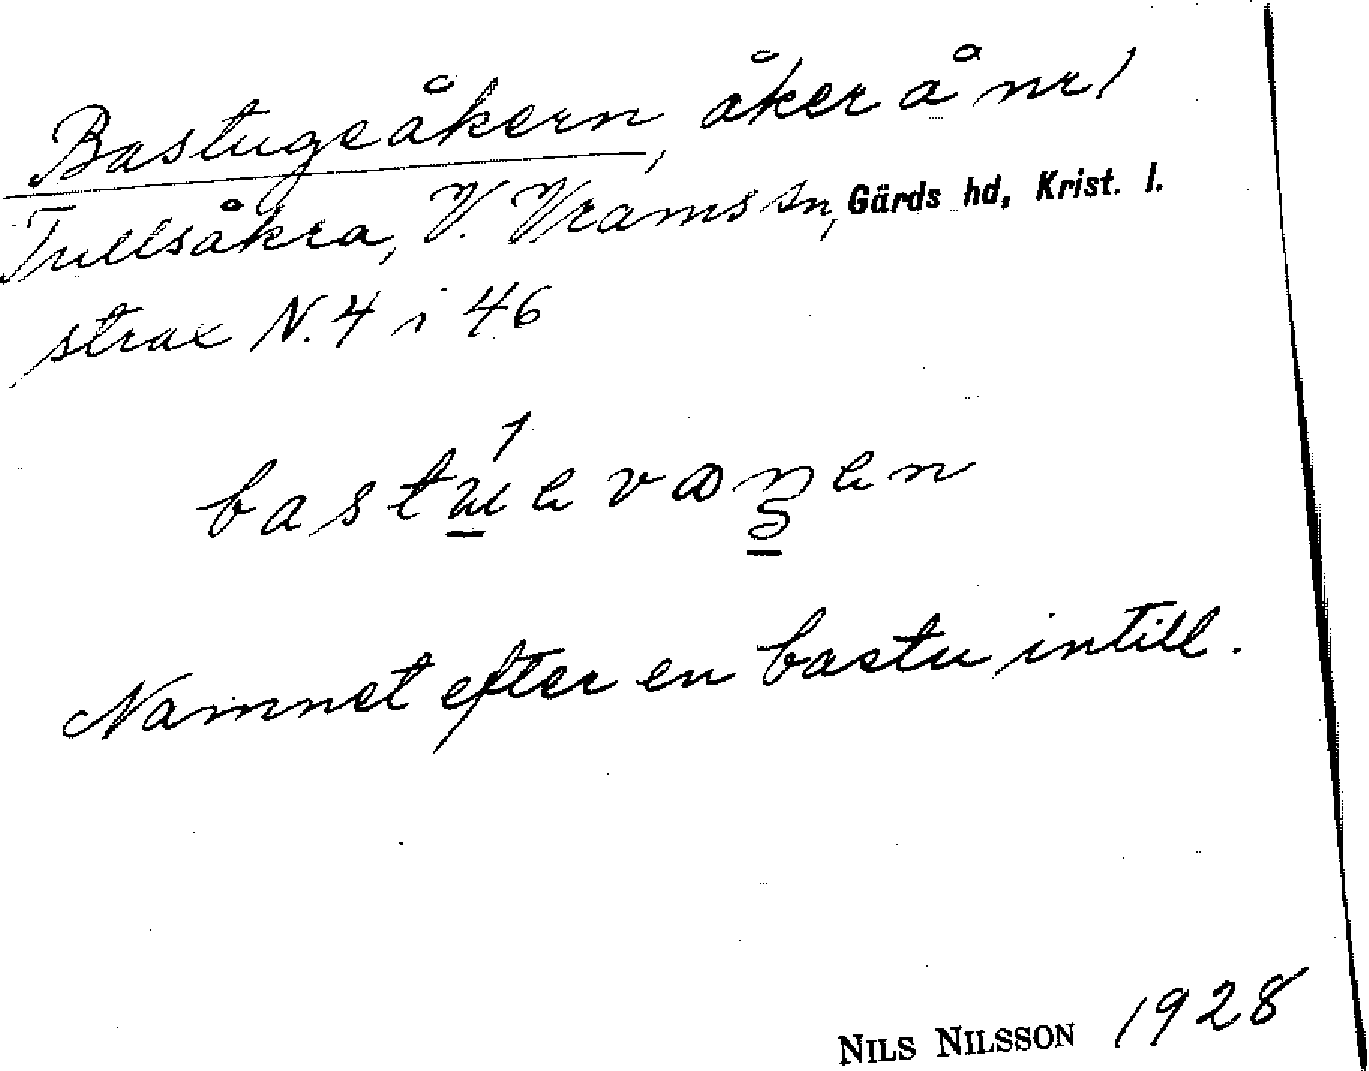 Bastugeåkern, åker å nr 1
Tullsåkra, V. Vrams sn, Gärds hd, Krist. l.
strax N. 4 i 46
Namnet efter en bastu intill.
NILS NILSSON 1928